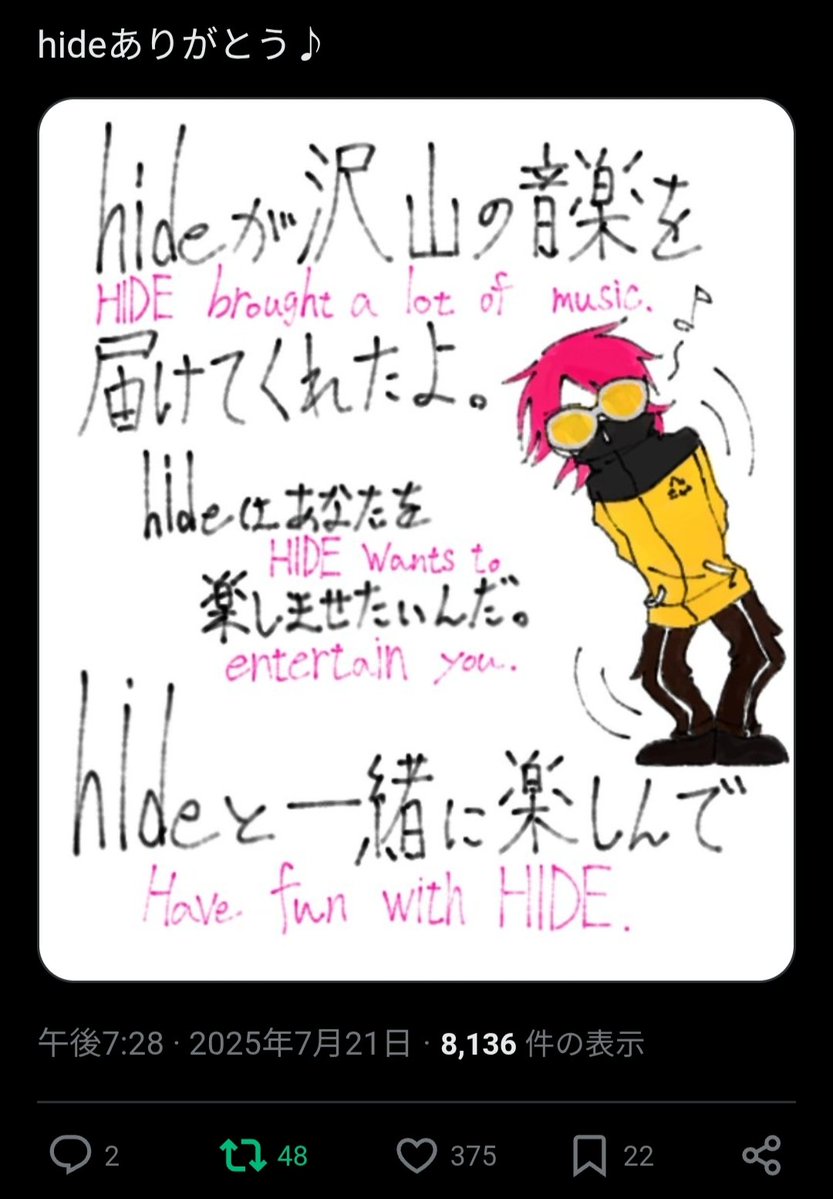 hideありがとう♪
hideが沢山の音楽を
HIDE brought a lot of music.
届けてくれたよ。
hideはあなたを
HIDE Wants to
楽しませたいんだ。
entertain you.
hideと一緒に楽しんで
Have fun with HIDE.
午後7:28 · 2025年7月21日 · 8,136 件の表示
2 48 375 22